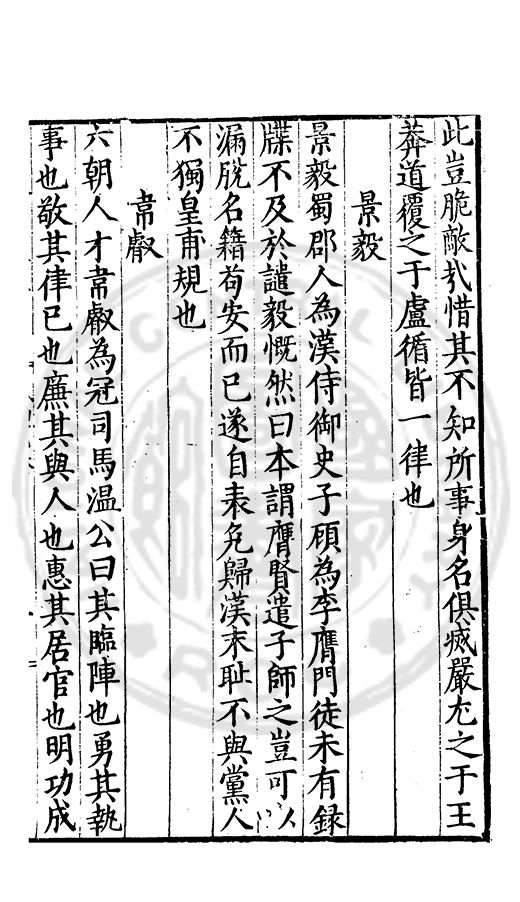 此豈脆敵㢤惜其不知所事身名俱烕嚴尤之于王
莽道覆之于盧循皆一律也
景毅
景毅蜀郡人為漢侍御史子顧為李膺門徒未有録
牒不及於譴毅慨然曰本謂膺賢遣子師之豈可以
漏脱名籍苟安而已遂自表免歸漢末耻不與黨人
不獨皇甫規也
韋叡
六朝人才韋叡為冠司馬温公曰其臨陣也勇其執
事也敬其律已也廉其與人也惠其居官也明功成